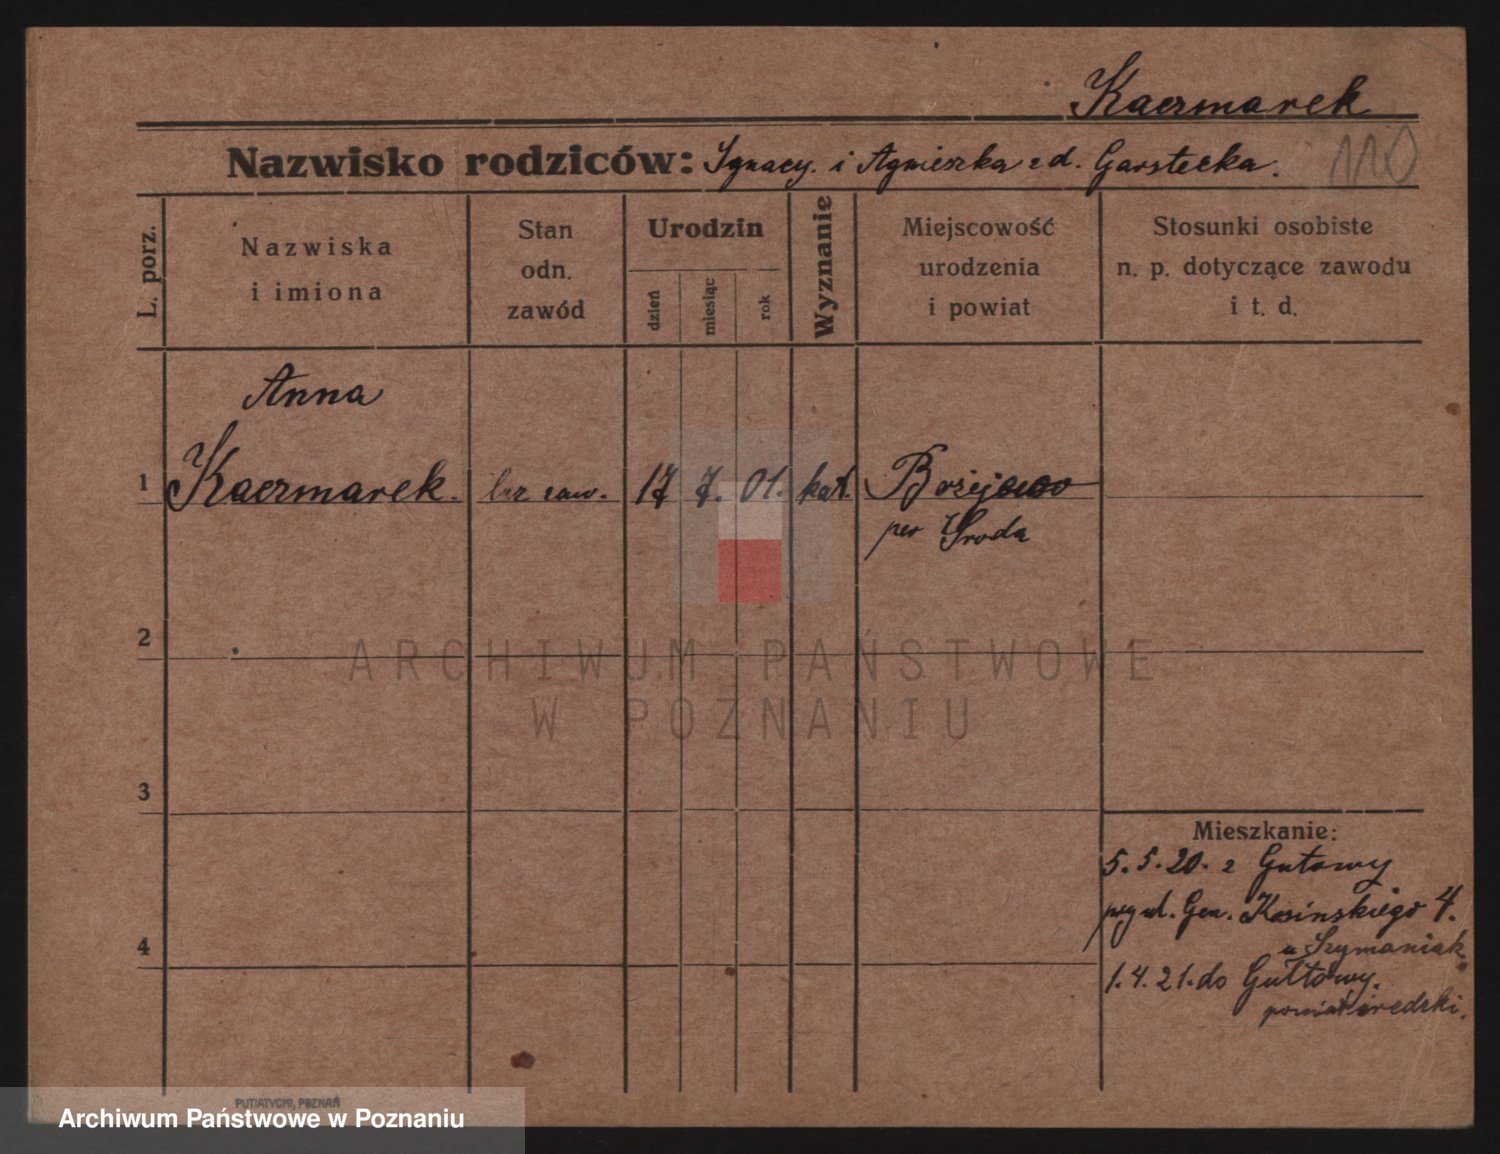 Kaczmarek
Nazwisko rodziców: Ignacy i Agnieszka z d. Garstecka.
110
L. porz.
Nazwiska
i imiona
Stan
odn.
zawód
Urodzin
dzień
miesiąc
rok
Wyznanie
Miejscowość
urodzenia
i powiat
Stosunki osobiste
n. p. dotyczące zawodu
i t. d.
Anna
1 Kaczmarek. bez zaw. 17 7. 01. kat. Bożejewo
pow Środa
2
3
4
Mieszkanie:
5.5.20. z Gutowy
ul. Gen. Kosińskiego 4.
u Szymaniak
1.4.21. do Gułtowy.
powiat średzki.
PUTIATYCKI, POZNAŃ
ARCHIWUM PAŃSTWOWE
W POZNANIU
Archiwum Państwowe w Poznaniu